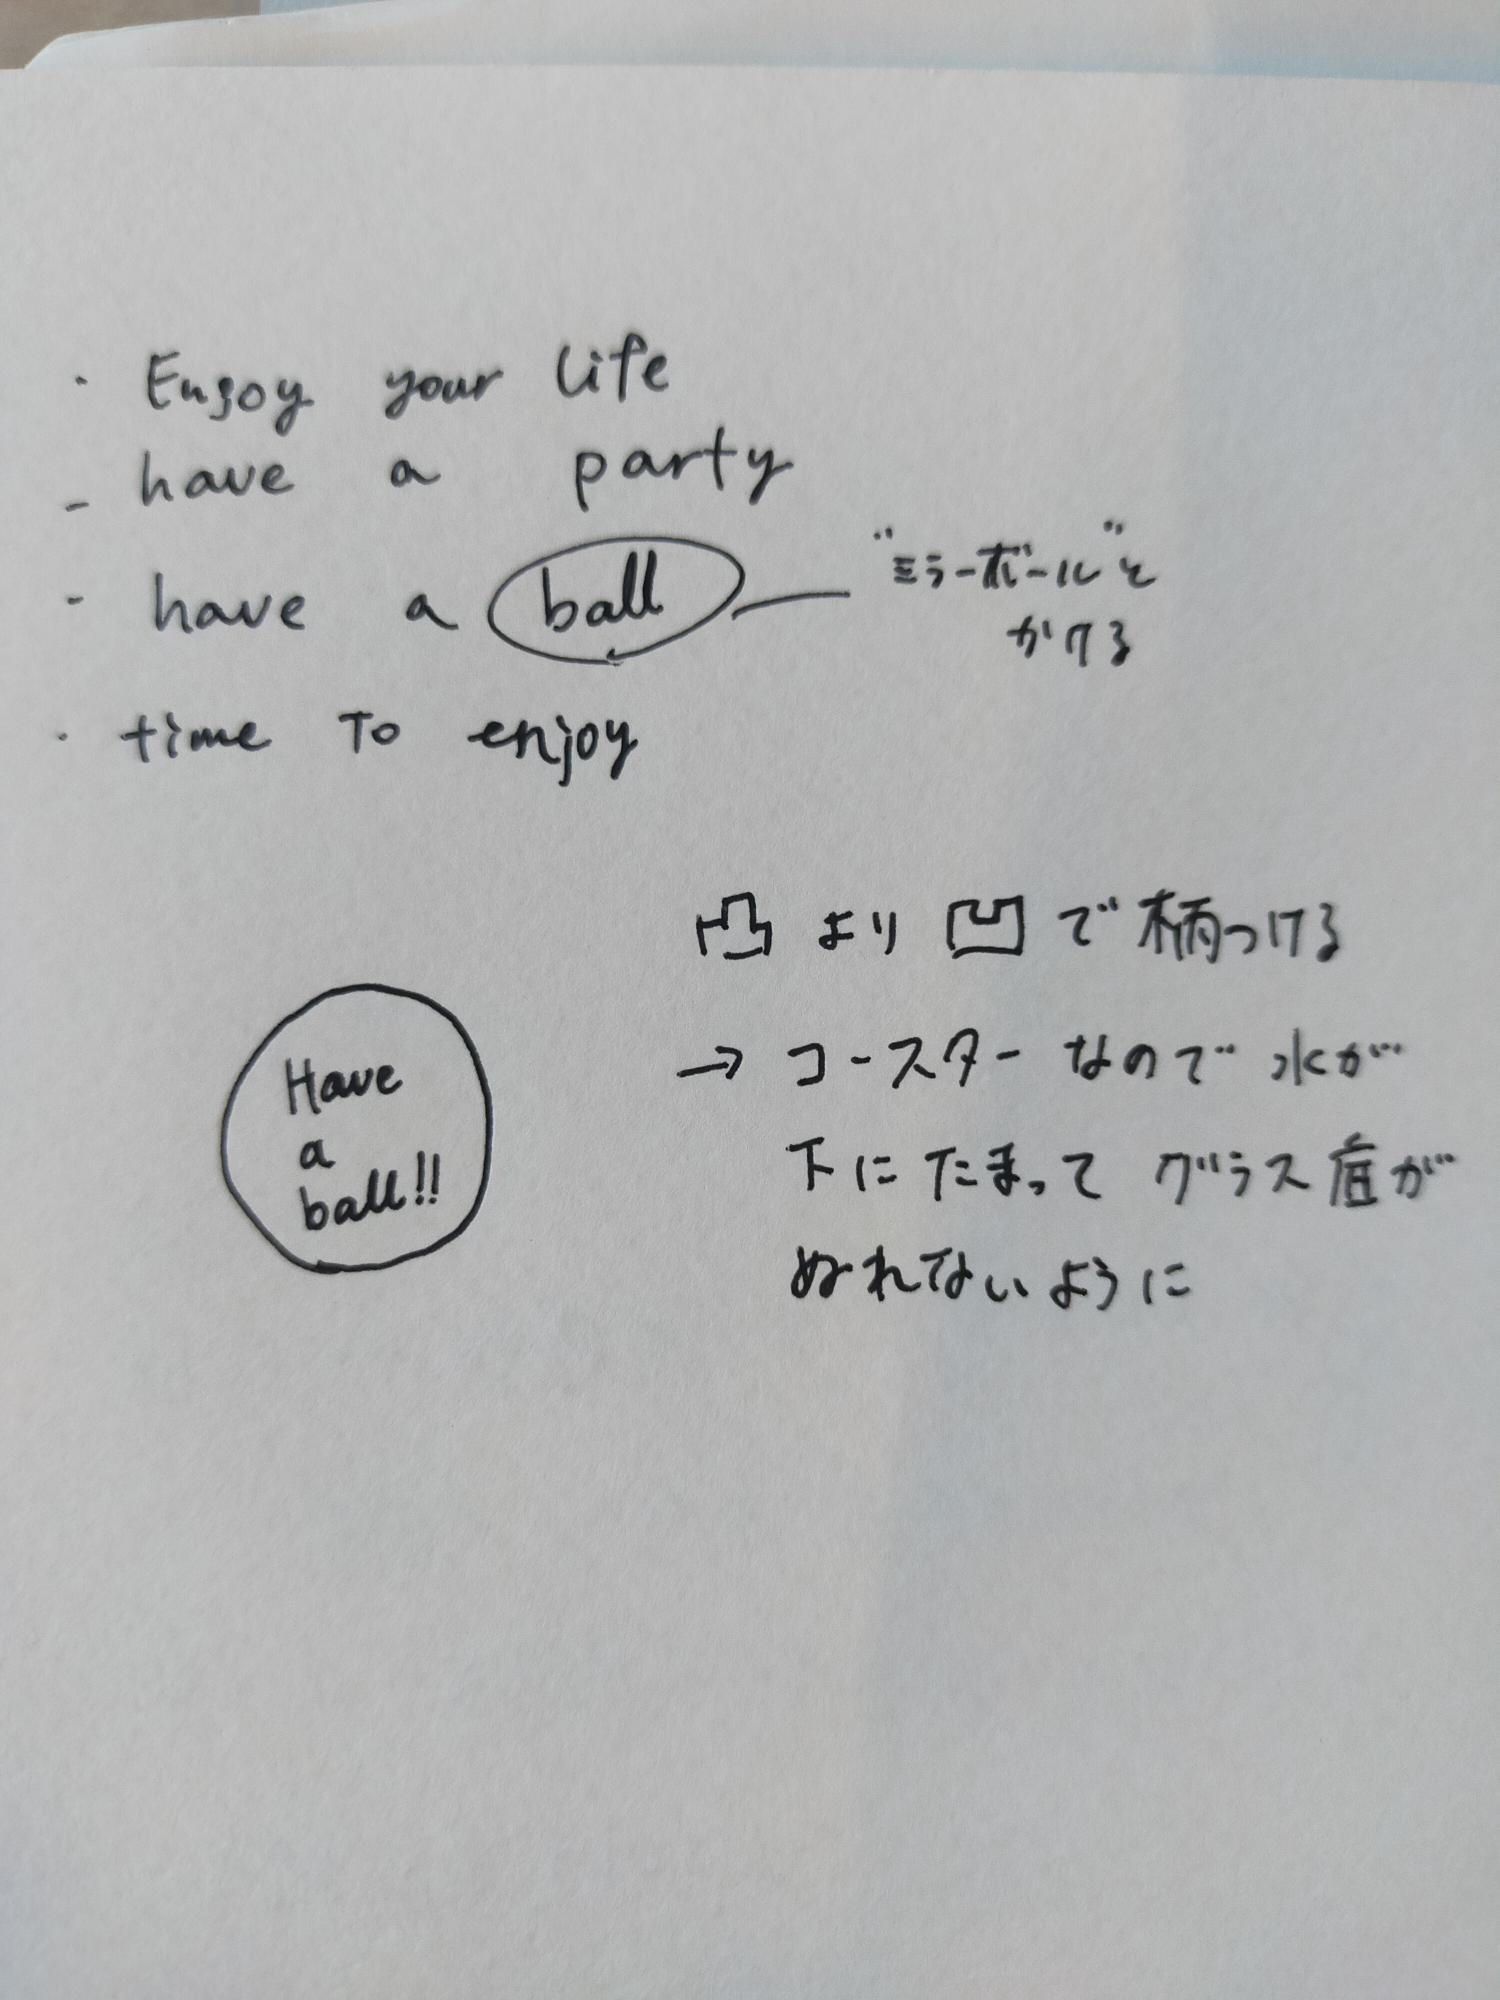 ・Enjoy your life
- have a party
- have a ball
"ミラーボール"と
かける
・time To enjoy
凸より凹で柄つける
→ コースターなので水が
下にたまってグラス底が
ぬれないように
Have
a
ball!!